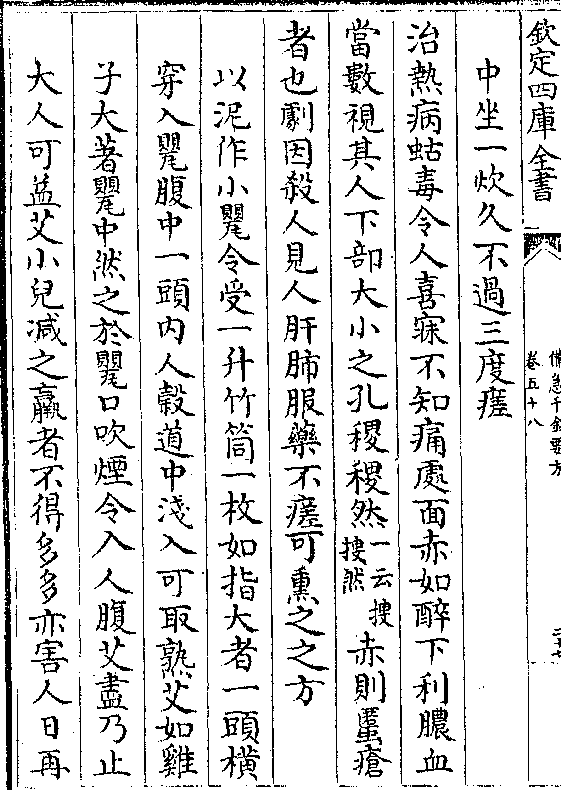 欽定四庫全書
備急千金要方
卷五十八
中坐一炊久不過三度瘥
治熱病蛄毒令人喜寐不知痛處面赤如醉下利膿血
當數視其人下部大小之孔稷稷然一云㮴㮴然赤則䘌瘡
者也劇因殺人見人肝肺服藥不瘥可熏之之方
以泥作小甖令受一升竹筒一枚如指大者一頭橫
穿入甖腹中一頭內人穀道中淺入可取熟艾如雞
子大著甖中燃之於甖口吹煙令入人腹艾盡乃止
大人可益艾小兒减之羸者不得多多亦害人日再